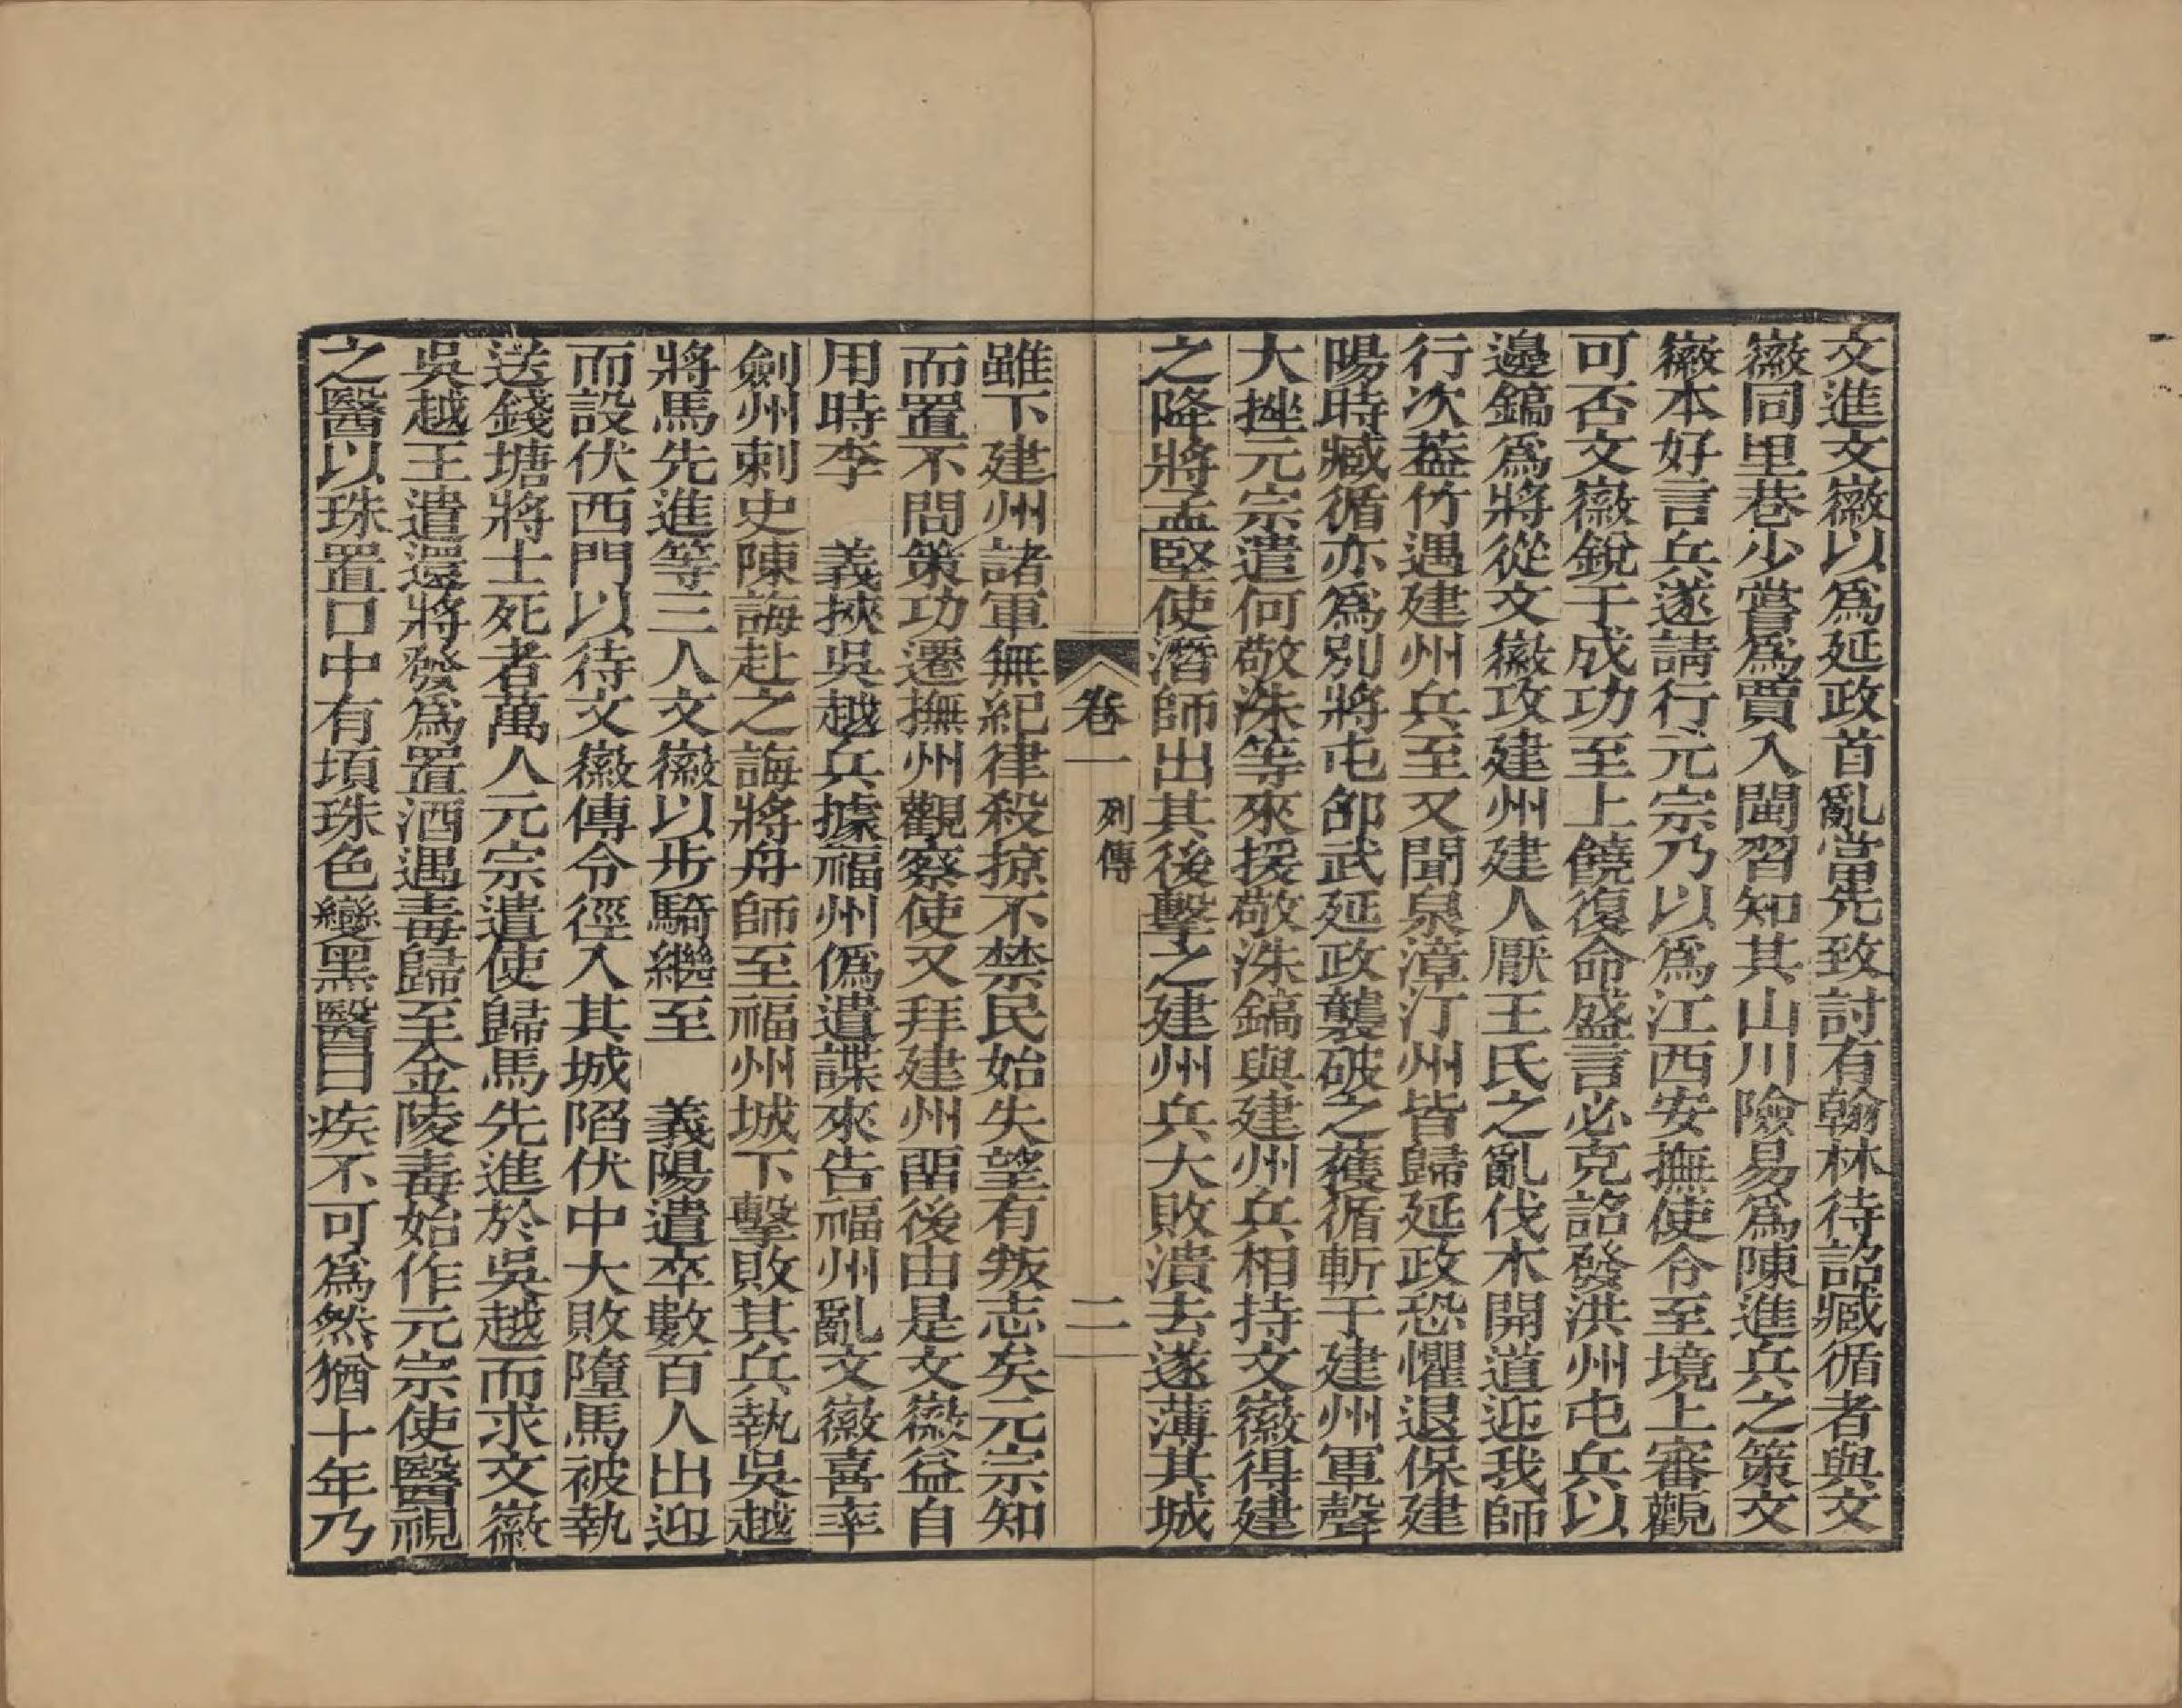 文進文徽以爲延政首亂當先致討有翰林待詔臧循者與文
徽同里巷少嘗爲賈入閩習知其山川險易爲陳進兵之策文
徽本好言兵遂請行元宗乃以爲江西安撫使令至境上審觀
可否文徽銳于成功至上饒復命盛言必克詔發洪州屯兵以
邊鎬爲將從文徽攻建州建人厭王氏之亂伐木開道迎我師
行次葢竹遇建州兵至又聞泉漳汀州皆歸延政恐懼退保建
陽時臧循亦爲別將屯邵武延政襲破之獲循斬于建州軍聲
大挫元宗遣何敬洙等來援敬洙鎬與建州兵相持文徽得建
之降將孟堅使潛師出其後擊之建州兵大敗潰去遂薄其城
卷一 列傳 二
雖下建州諸軍無紀律殺掠不禁民始失望有叛志矣元宗知
而置不問策功遷撫州觀察使又拜建州畱後由是文徽益自
用時李 義挾吳越兵據福州僞遣諜來告福州亂文徽喜率
劍州刺史陳誨赴之誨將舟師至福州城下擊敗其兵執吳越
將馬先進等三人文徽以步騎繼至 義陽遣卒數百人出迎
而設伏西門以待文徽傳令徑入其城陷伏中大敗墮馬被執
送錢塘將士死者萬人元宗遣使歸馬先進於吳越而求文徽
吳越王遣還將發爲置酒遇毒歸至金陵毒始作元宗使醫視
之醫以珠置口中有頃珠色變黑醫曰疾不可爲然猶十年乃